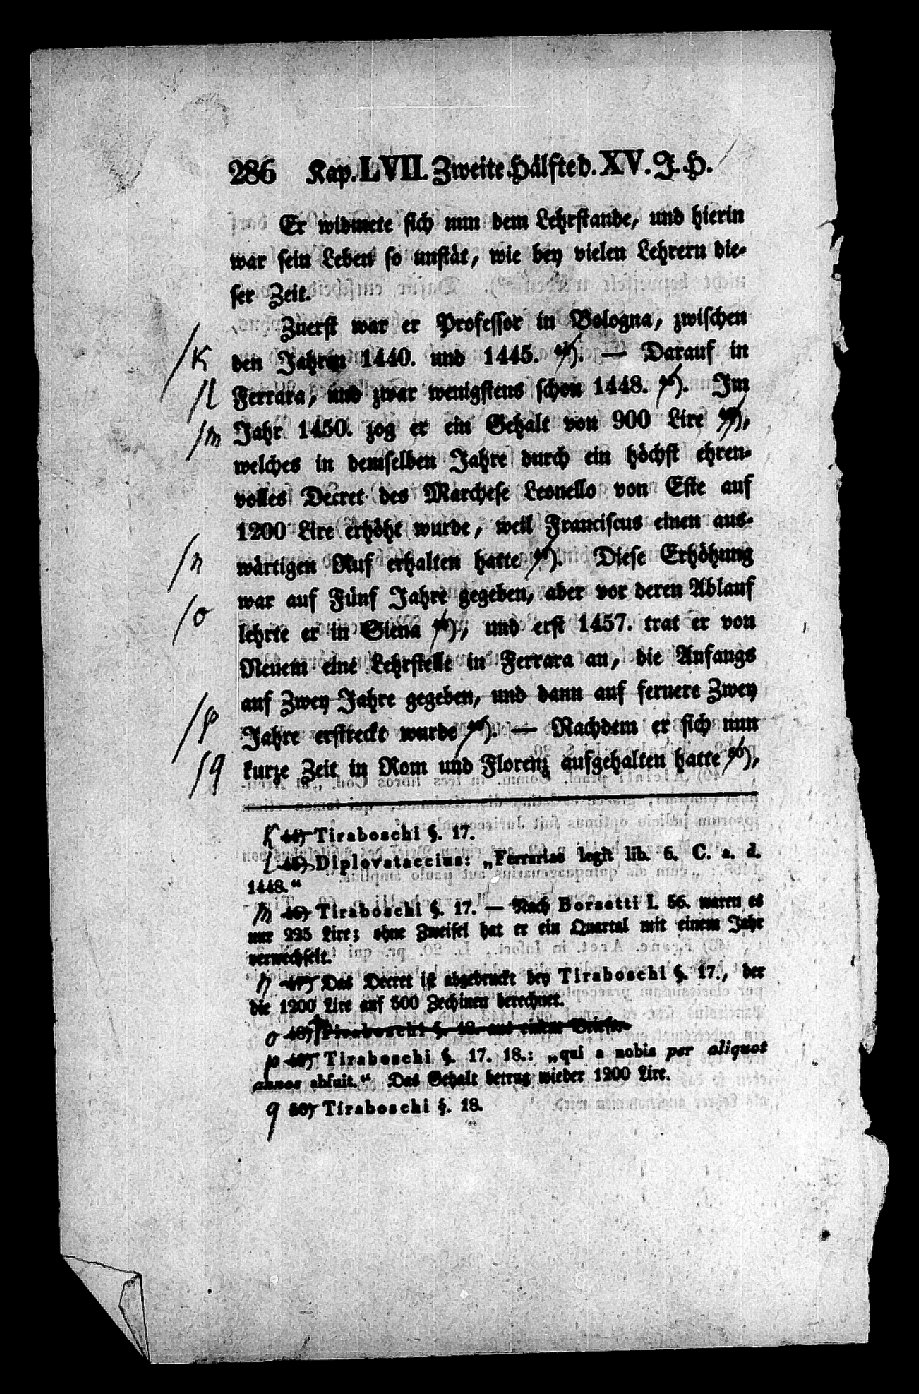 286 Kap. LVII. Zweite Hälfte d. XV. J. H.
Er widmete sich nun dem Lehrstande, und hierin
war sein Leben so unstät, wie bey vielen Lehrern die-
ser Zeit.
Zuerst war er Professor in Bologna, zwischen
/k den Jahren 1440. und 1445. ). — Darauf in
/l Ferrara, und zwar wenigstens schon 1448. ). Im
/m Jahr 1450. zog er ein Gehalt von 900 Lire ),
welches in demselben Jahre durch ein höchst ehren-
volles Decret des Marchese Leonello von Este auf
1200 Lire erhöht wurde, weil Franciscus einen aus-
/n wärtigen Ruf erhalten hatte ). Diese Erhöhung
war auf Fünf Jahre gegeben, aber vor deren Ablauf
/o lehrte er in Siena ), und erst 1457. trat er von
Neuem eine Lehrstelle in Ferrara an, die Anfangs
auf Zwey Jahre gegeben, und dann auf fernere Zwey
/p Jahre erstreckt wurde ). — Nachdem er sich nun
/q kurze Zeit in Rom und Florenz aufgehalten hatte ),
k 44) Tiraboschi §. 17.
l 45) Diplovataccius: „Ferrariae legit lib. 6. C. a. d.
1448.“
m 46) Tiraboschi §. 17. — Nach Borsetti I. 56. waren es
nur 225 Lire; ohne Zweifel hat er ein Quartal mit einem Jahr
verwechselt.
n 47) Das Decret ist abgedruckt bey Tiraboschi §. 17., der
die 1200 Lire auf 500 Zechinen berechnet.
o 48) Tiraboschi §. 18. aus einem Briefe.
p 49) Tiraboschi §. 17. 18.: „qui a nobis per aliquot
annos abfuit.“ Das Gehalt betrug wieder 1200 Lire.
q 50) Tiraboschi §. 18.